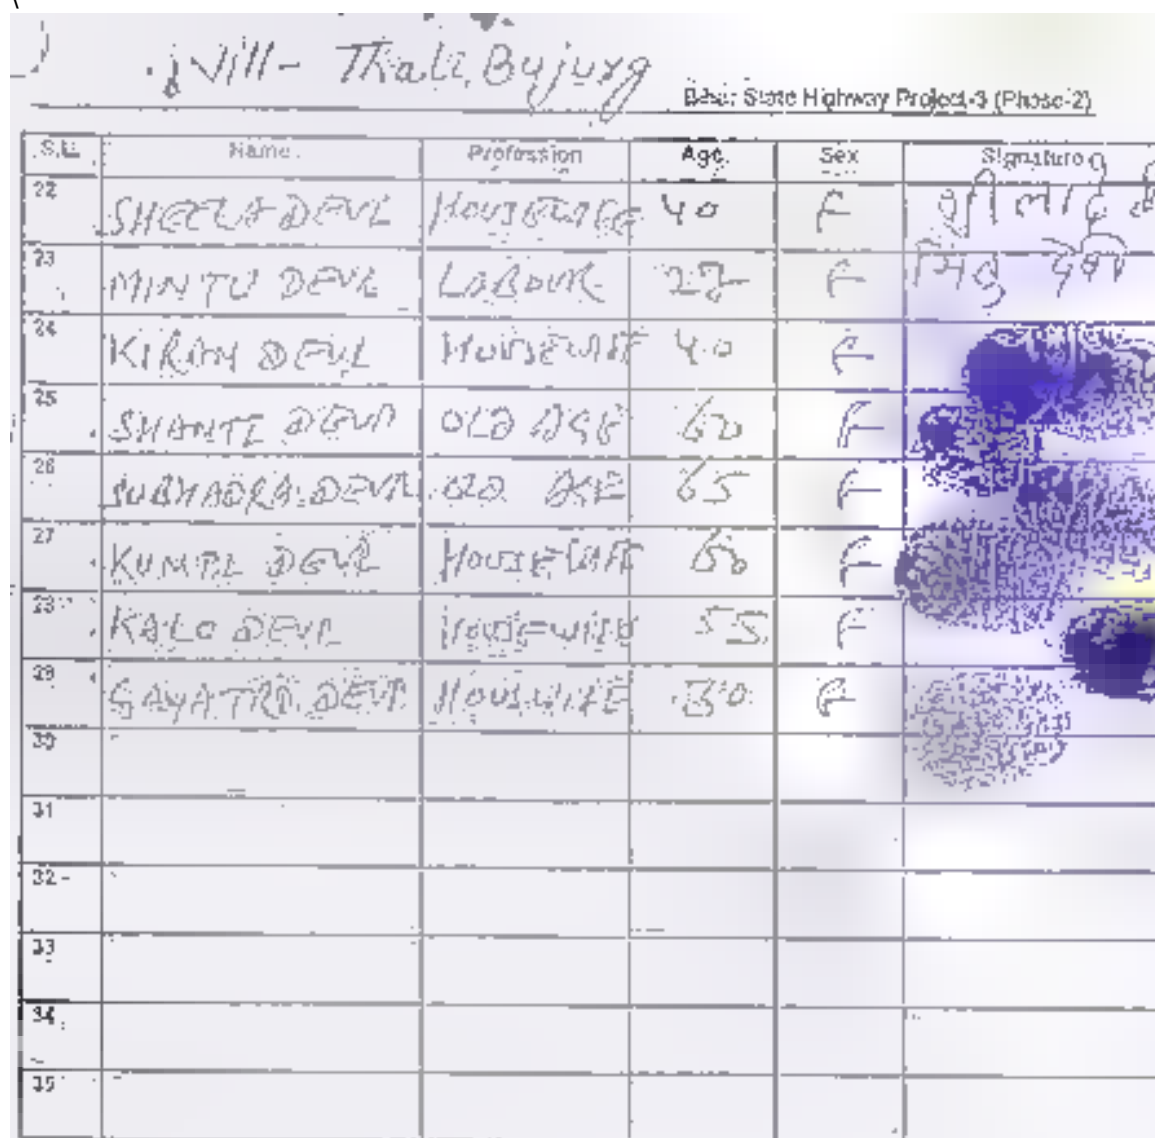 Vill- Thali, Bujurg
Bihar State Highway Project-3 (Phase-2)
S.N. Name Profession Age Sex Signature
22 SHEELA DEVI HOUSEWIFE 40 F
23 MINTU DEVI LABOUR 22 F
24 KIRAN DEVI HOUSEWIFE 40 F
25 SHANTI DEVI OLD AGE 60 F
26 SUBHADRA DEVI OLD AGE 65 F
27 KUNTI DEVI HOUSEWIFE 60 F
28 KALO DEVI HOUSEWIFE 55 F
29 GAYATRI DEVI HOUSWIFE 30 F
30
31
32
33
34
35